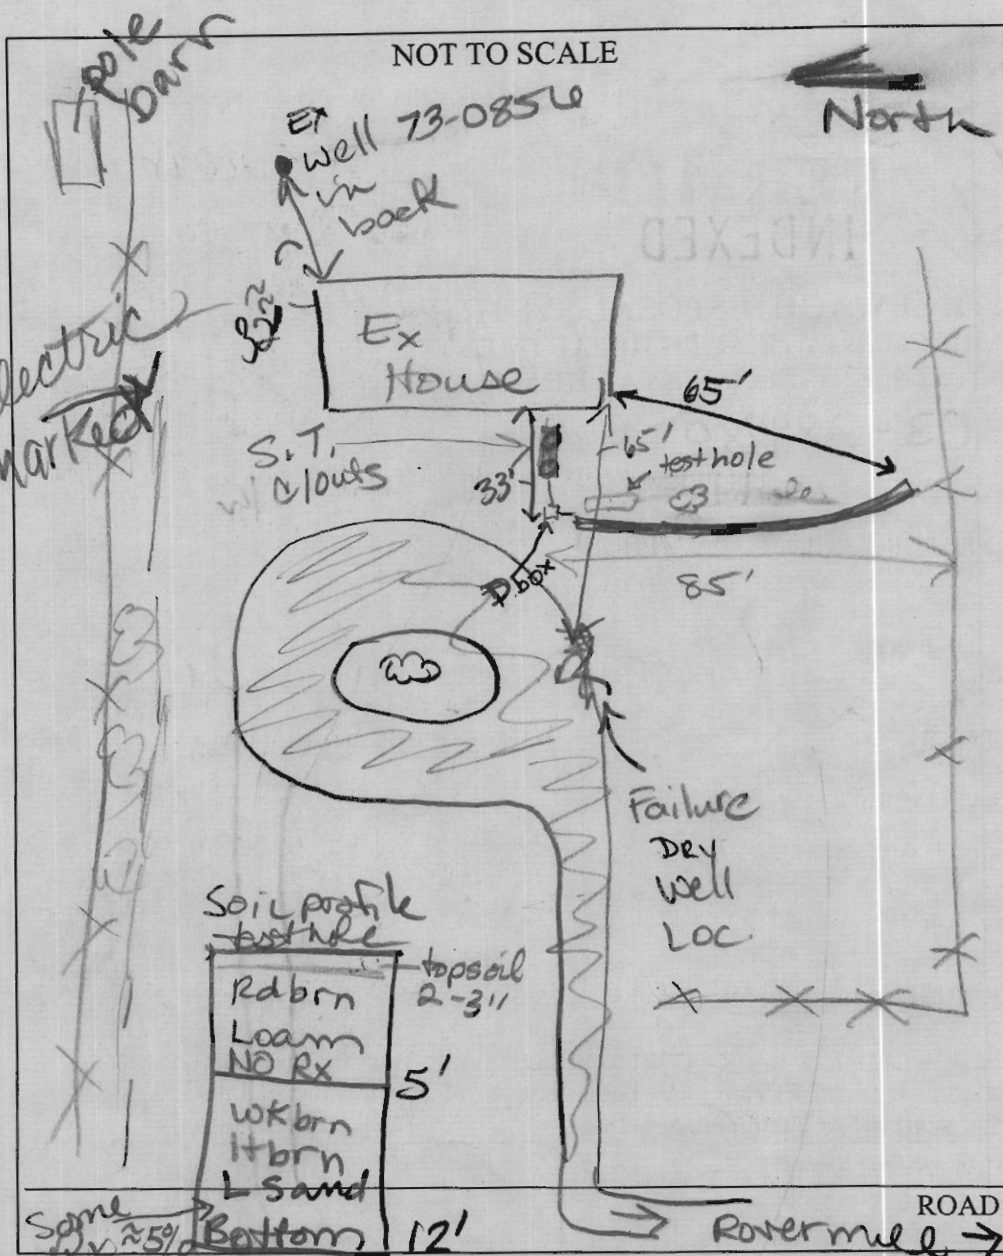 NOT TO SCALE
pole
barn
North
Ex
well 73-0856
in
back
INDEXED
32'
Ex
House
electric
marked
65'
S.T.
w/ c/outs
33'
65'
test hole
D box
85'
Failure
DRY
well
LOC
Soil profile
test hole
topsoil
2-3"
Rd brn
Loam
NO RX
5'
WK brn
lt brn
L Sand
Some
≈5%
Bottom 12'
ROAD
Rovermill →